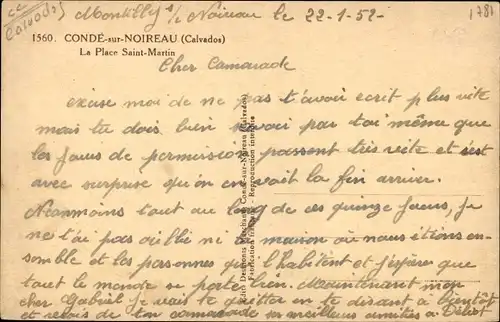 Calvados
Montilly s/ Noireau le 22-1-52-
1781
1560. CONDÉ-sur-NOIREAU (Calvados)
La Place Saint-Martin
Cher Camarade
excuse moi de ne pas t'avoir ecrit plus vite
mais tu dois bien savoir par toi même que
les jours de permission passent très vite et c'est
avec surprise qu'on en voit la fin arriver.
Neanmoins tout au long de ces quinze jours, je
ne t'ai pas oublié ni la maison où nous étions en-
semble et les personnes qui l'habitent et j'éspère que
tout le monde se porte bien. Maintenant mon
cher Gabriel je vais te quitter en te disant à bientôt
et reçois de ton camarade ses meilleurs amitiés à
Condé-sur-Noireau (Calvados)
Reproduction interdite